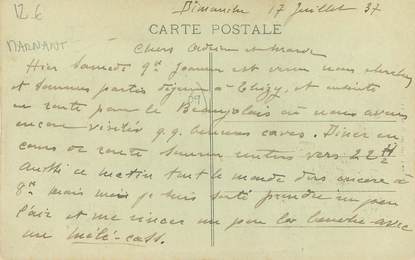 12.6
MARNANT
Dimanche 17 Juillet 37
CARTE POSTALE
Chers
Hier Samedi gd Jeannin est venu nous chercher
et sommes partis déjeuner à Cluzy, et ensuite
en route pour le Beaujolais où nous avons
69
encore visités q.q. bonnes caves. Diner en
cours de route sommes rentrés vers 22H
Aussi ce matin tout le monde dors encore à
9H mais moi je suis sorti prendre un peu
l'air et me rincer un peu la bouche avec
un mélé-cass.